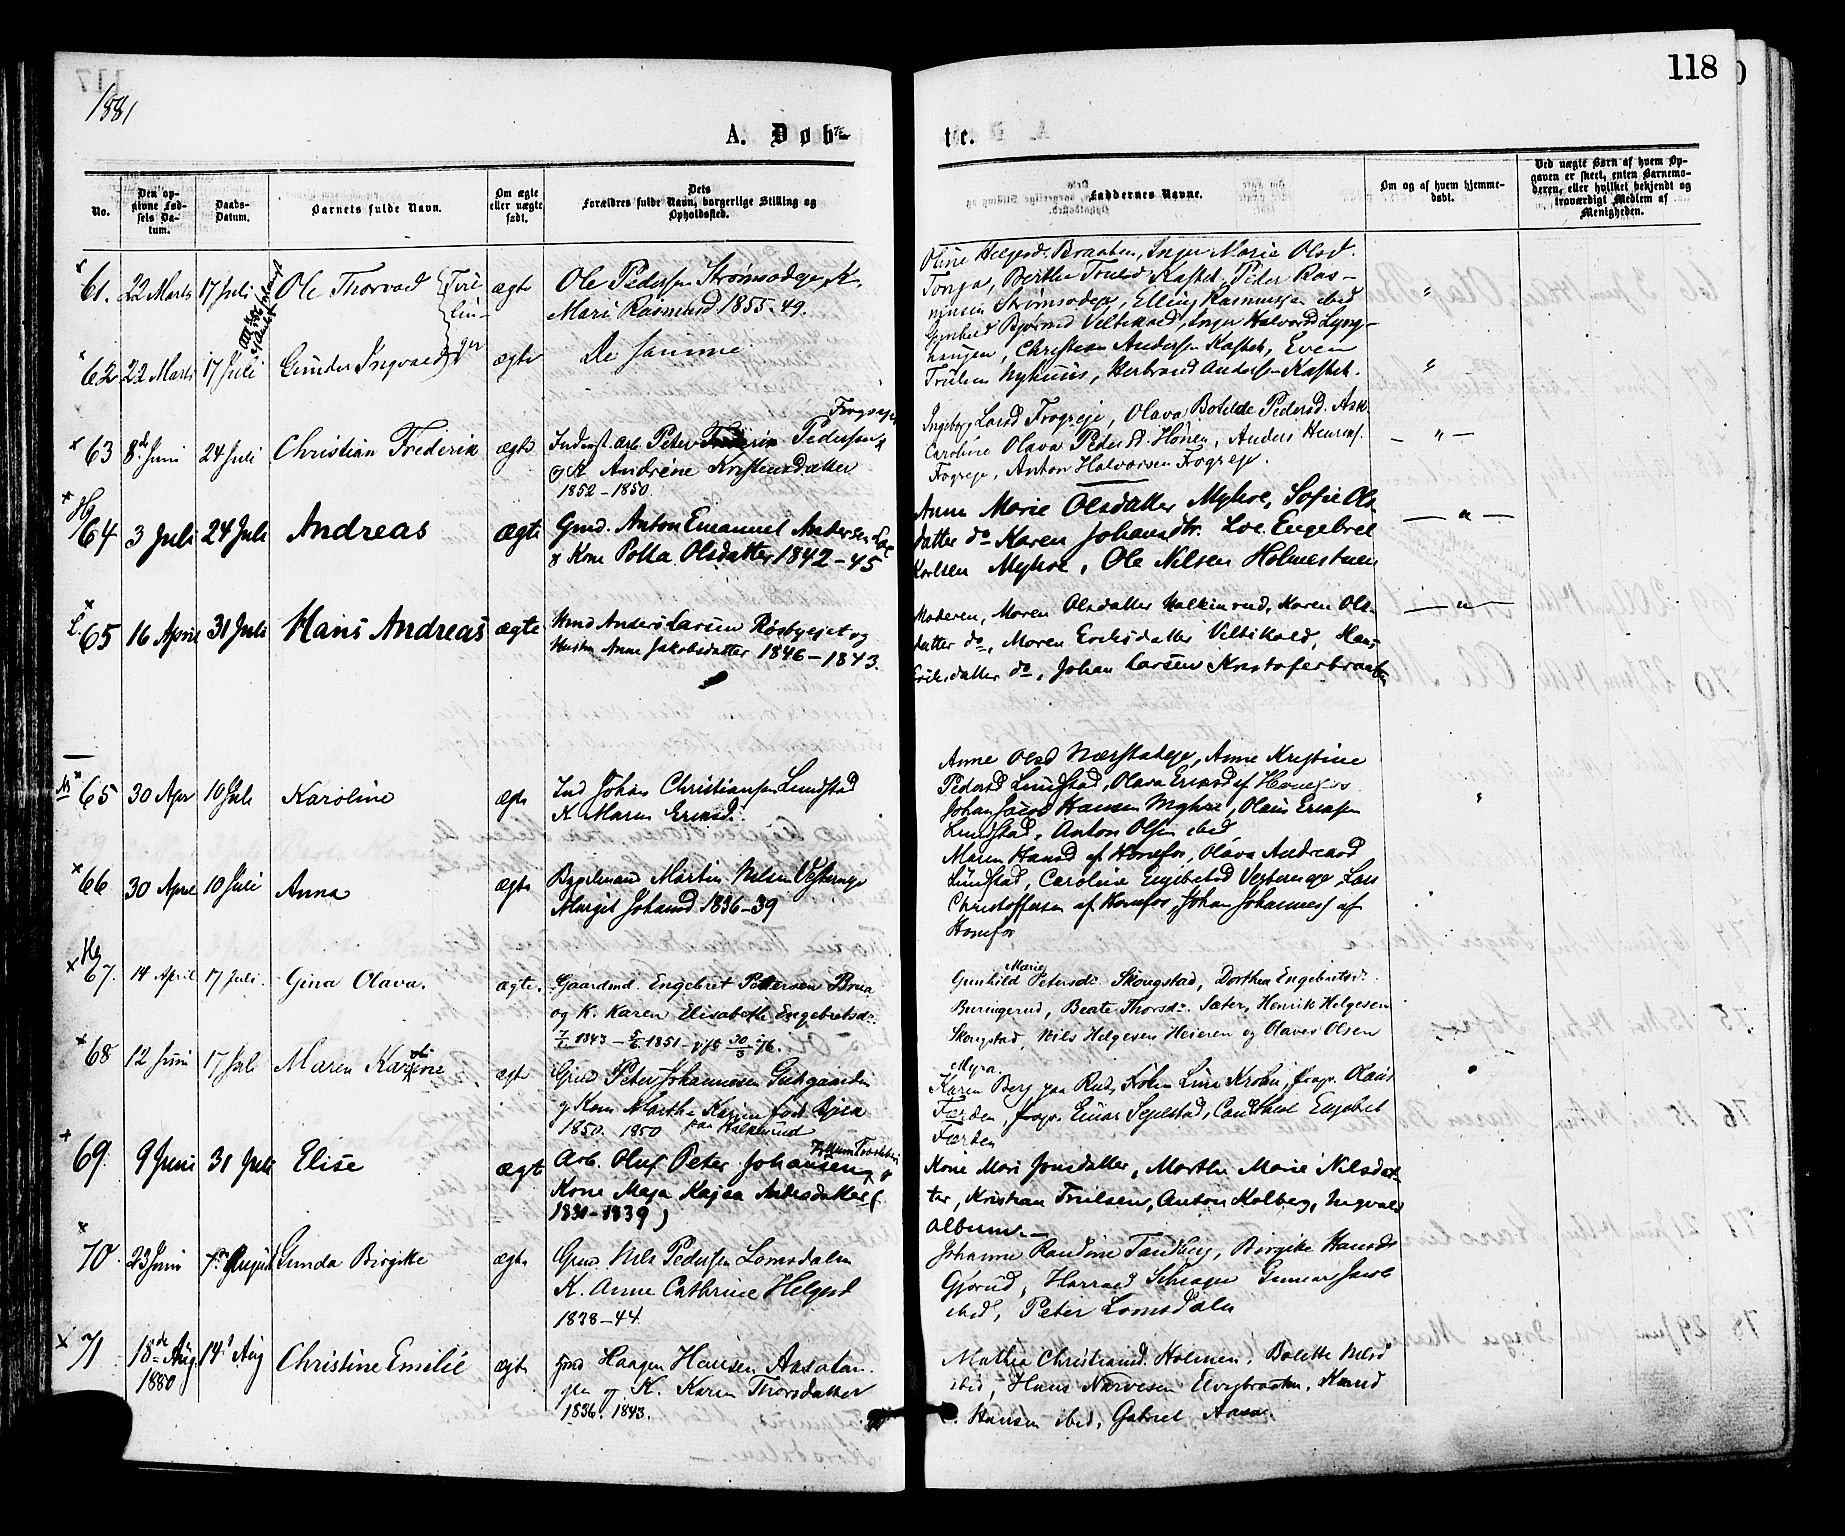 118
1881
A. Døb-
te.
No.
Den op-
givne Fød-
sels Da-
tum.
Daabs-
Datum.
Barnets fulde Navn.
Om ægte
eller uægte
født.
Dets
Forældres fulde Navn, borgerlige Stilling og
Opholdssted.
Faddernes Navne.
Om og af hvem hjemme-
døbt.
Ved uægte Børn af hvem Op-
gaven er skeet, enten Barnemo-
deren, eller hvilket bekjendt og
troværdigt Medlem af
Menigheden.
61. 22 Marts 17 Juli Ole Thorvald ægte Ole Pedersen Strømsodejp, K.
Mari Rasmusd 1855-49.
Oline Helgesd. Braaten, Inger Marie Olsd.
Berthe Trulsd Kastet, Peder Ras-
Elling Rasmussen ibid
Gunhild Bjørnsd Veltikold, Inger Halvorsd Lyng-
62 22 Marts 17 Juli Gunder Ingvald ægte De samme
haugen, Christian Andersen Kastet, Even
Trulsen Nyhuus, Herbrand Andersen Kastet.
63 8de Juni 24 Juli Christian Frederik ægte Inderst. arb. Peter Pedersen
og K. Andrine Kristensdatter
1852-1850
Ingeborg Larsd Frogeje, Olava Botilde Pedersd. Ask
Caroline Olava Pedersd. Hønen, Anders Henrens.
Anton Halvorsen
Hg
64 3 Juli 24 Juli Andreas ægte Gmd. Anton Emanuel Andersen Loe
og Kone Olsdatter 1842-45
Anne Marie Olsdatter Myhre, Sofie Ols-
datter do Karen Johansdtr. Loe. Engebret
Karlsen Myhre, Ole Nilsen Holmestuen
L. 65 16 April 31 Juli Hans Andreas ægte Hmd Anders Larsen Røsbyejet og
Hustru Anne Jakobsdatter 1846-1843.
Moderen, Maren Olsdatter Kalkinrud, Karen Ols-
datter do, Maren Eriksdatter Veltikold, Hans
Eriksdatter do, Johan Larsen Kristoferbraaten
65 30 Apr 10 Juli Karoline ægte Ind Johan Christiansen Lundstad
K. Maren Ericsd.
Anne Olsd Anne Kristine
Pedersd Lundstad, Olava Ericsd af Hønefos
Johan Jacob Hansen Myhre, Olaus Ericsen
Lundstad, Anton Olsen ibid
66 30 April 10 Juli Anna ægte Bygselmand Martin Nilsen
Margit Johansd 1836-39
Maren Hansd af Hønefos, Olava Andreasd
Lundstad, Caroline Engebretsd Lars
Christoffersen af Hønefos, Johan Johannes. af
Hønefos
Hg
67. 14 April 17 Juli. Gina Olava. ægte. Gaardmd. Engebret Pettersen Braa
og K. Karen Elisabeth Engebretsd.
Gunhild Marie Petersd. Skongstad, Dorthea Engebretsd.
Buringerud, Beate Thorsd. Sæter, Henrik Helgesen
Skongstad, Nils Helgesen Heieren og Olaves Olsen
Myra.
68 12 Juni 17 Juli Maren ægte Gmd. Peter Johannesen
og Kone Marthe Karine
1850. 1850
Karen Berg paa Rud, Frøken Lina Krohn, Olaus
Færden, Einar Engebret
Færden
69. 9 Juni 31 Juli Elise ægte Arb. Oluf Peter Johansen og
Kone Maja Kajsa Andersdatter (
1831-1839)
Kone Mari Jonsdatter, Marthe Marie Nilsdat-
ter, Kristian Trulsen, Anton Kolberg, Ingvald
Albumr.
70. 23 Juni 7de August Gunda Birgitte ægte Gmd. Nils Pedersen Lomsdalen
K. Anne Cathrine Helgesd
1838-44
Johanne Randine Tandberg, Birgitte Hansd
Gjørud, Harrald Schrøger Gunnar Jacob
ibid, Peter Lomsdalen
71 18de Aug. 14 Aug Christine Emilie ægte Gmd Haagen Hansen Aasatan-
gen og K. Karen Thorsdatter
1880
1836. 1843.
Mathea Christiansd. Holmen, Bolette Nilsd
ibid, Hans Narvesen Elvebraaten, Knud
Hansen ibid, Gabriel Aasa.